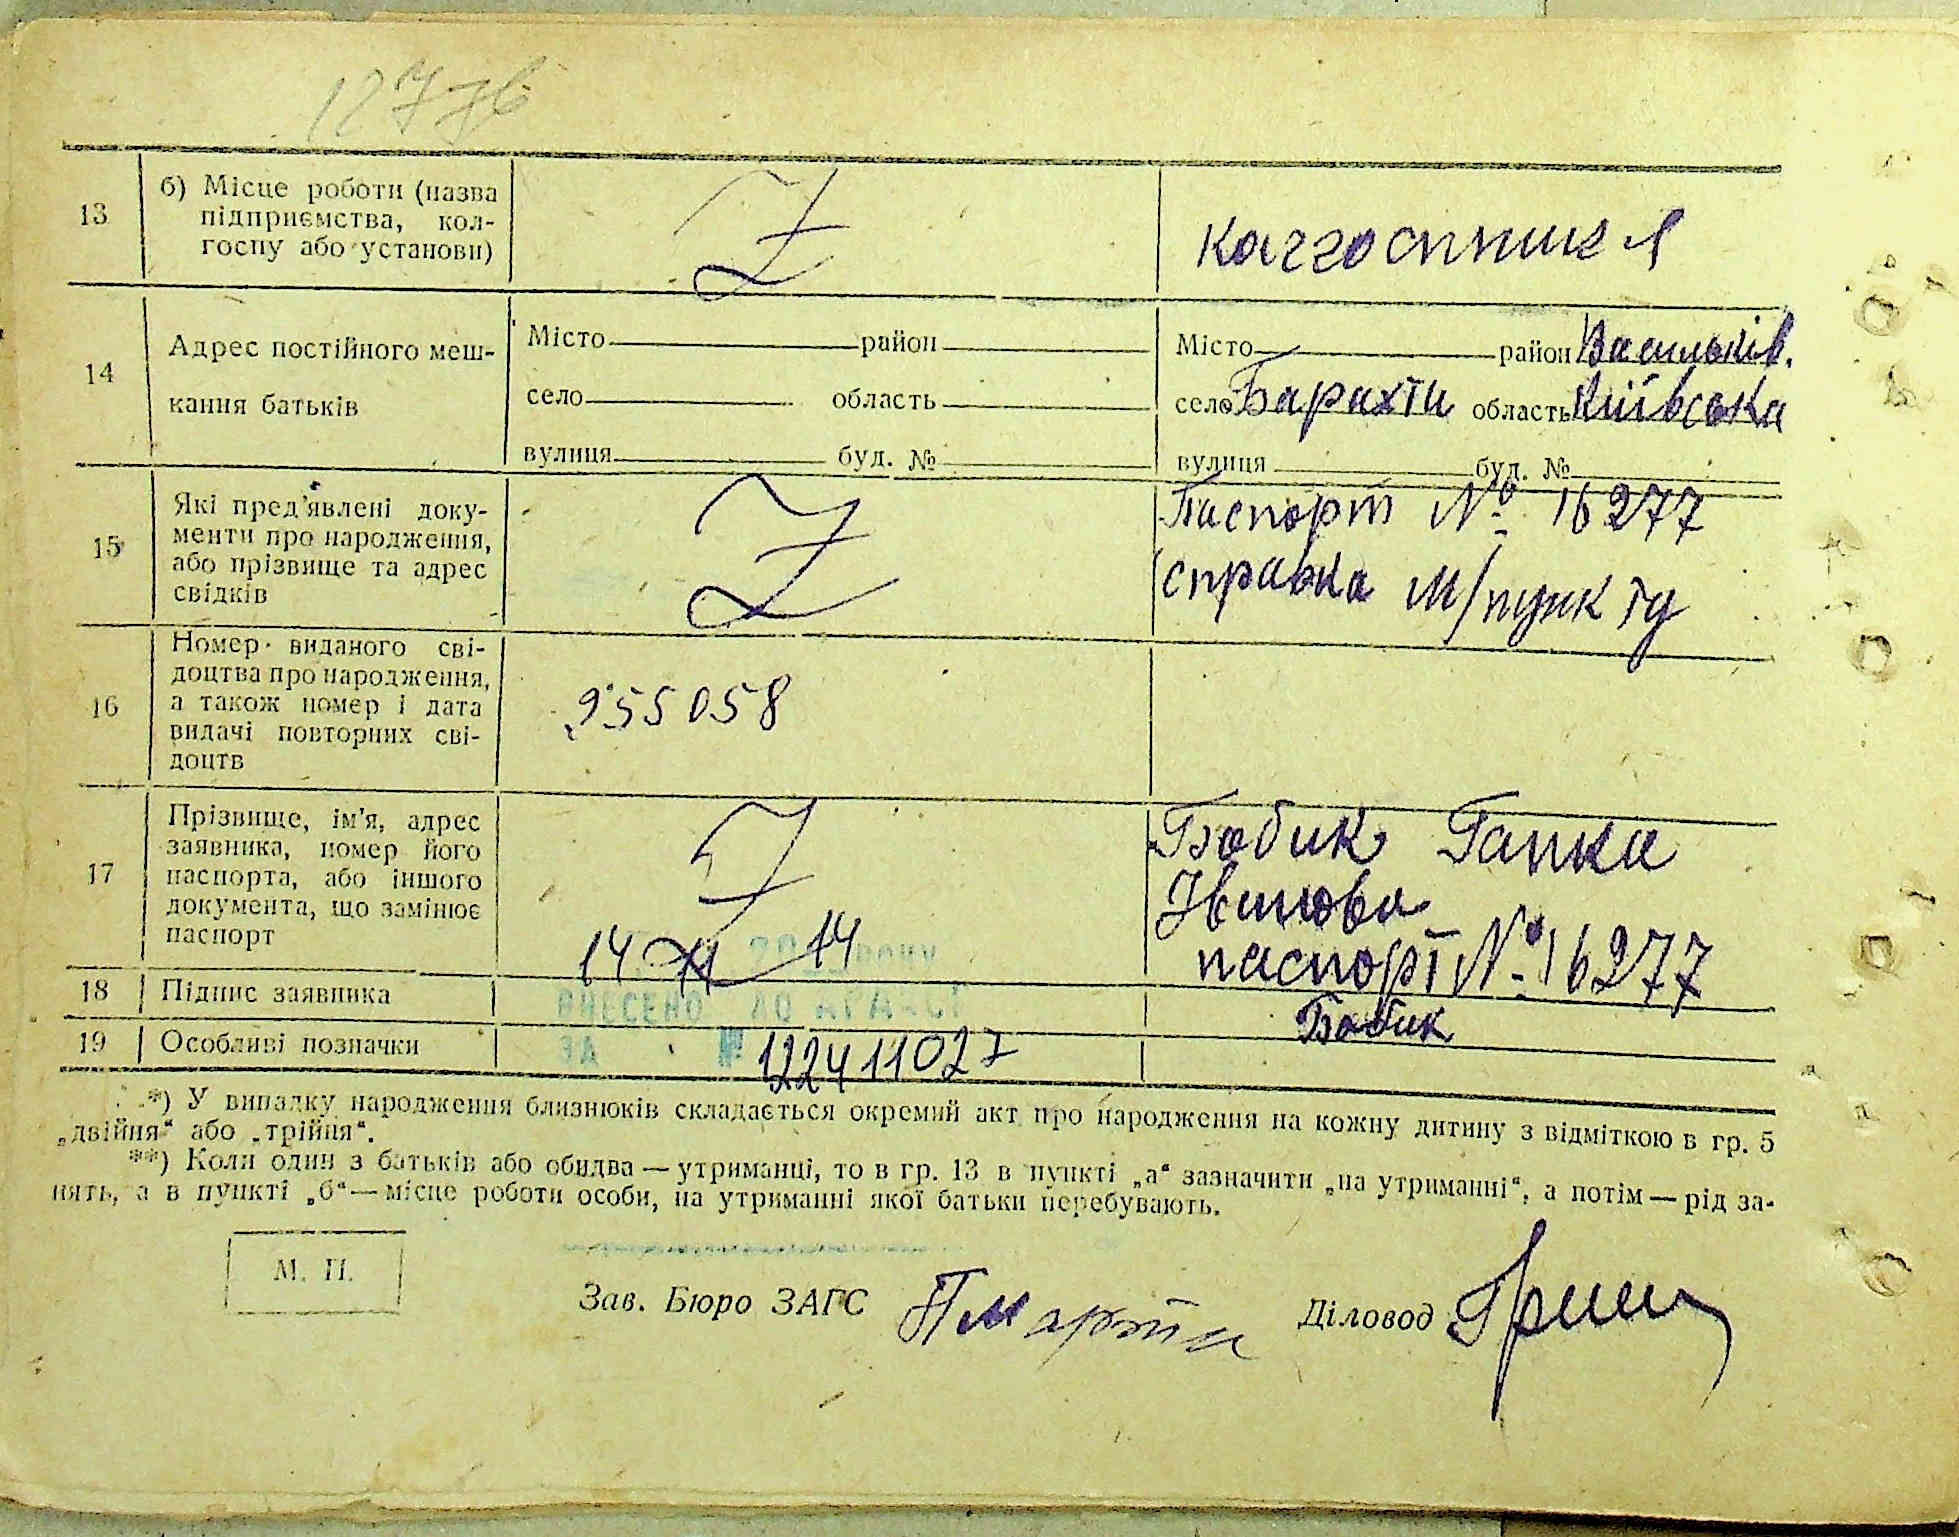 127зв
13
б) Місце роботи (назва
підприємства, кол-
госпу або установи)
колгоспник
14
Адрес постійного меш-
кання батьків
Місто район
село область
вулиця буд. №
Місто район Васильків.
село Барахти область Київська
вулиця буд. №
15
Які пред'явлені доку-
менти про народження,
або прізвище та адрес
свідків
Паспорт № 16277
справка м/пункту
16
Номер виданого сві-
доцтва про народження,
а також номер і дата
видачі повторних сві-
доцтв
955058
17
Прізвище, ім'я, адрес
заявника, номер його
паспорта, або іншого
документа, що замінює
паспорт
14 XI 2014 року
Бобик Гапка
Іванова
паспорт № 16277
18
Підпис заявника
ВНЕСЕНО ДО
Бобик
19
Особливі позначки
ЗА № 122411027
*) У випадку народження близнюків складається окремий акт про народження на кожну дитину з відміткою в гр. 5
„двійня“ або „трійня“.
**) Коли один з батьків або обидва — утриманці, то в гр. 13 в пункті „а“ зазначити „на утриманні“, а потім — рід за-
нять, а в пункті „б“ — місце роботи особи, на утриманні якої батьки перебувають.
М. П.
Зав. Бюро ЗАГС
Діловод